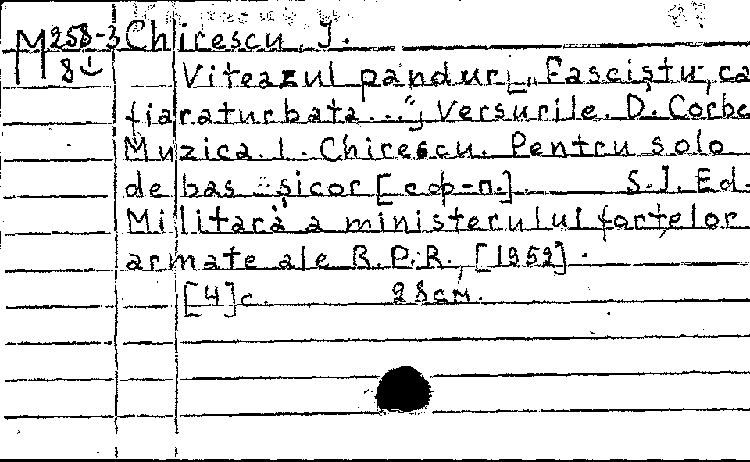 M 258-3 Chirescu, J.
8
Viteazul pandur [„Fasciştu, ca
fiara turbata...“] Versurile. D. Corbe
Muzica. I. Chirescu. Pentru solo
de bas şi cor [с ф-п.]. S. I. Ed.
Militară a ministerului forţelor
armate ale R.P.R., [1952].
[4] с. 28 см.